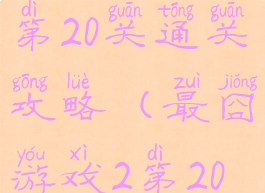 dì guān tōng guān
第20关通关
gōng lüè zuì jiǒng
攻略(最囧
yóu xì dì
游戏2第20